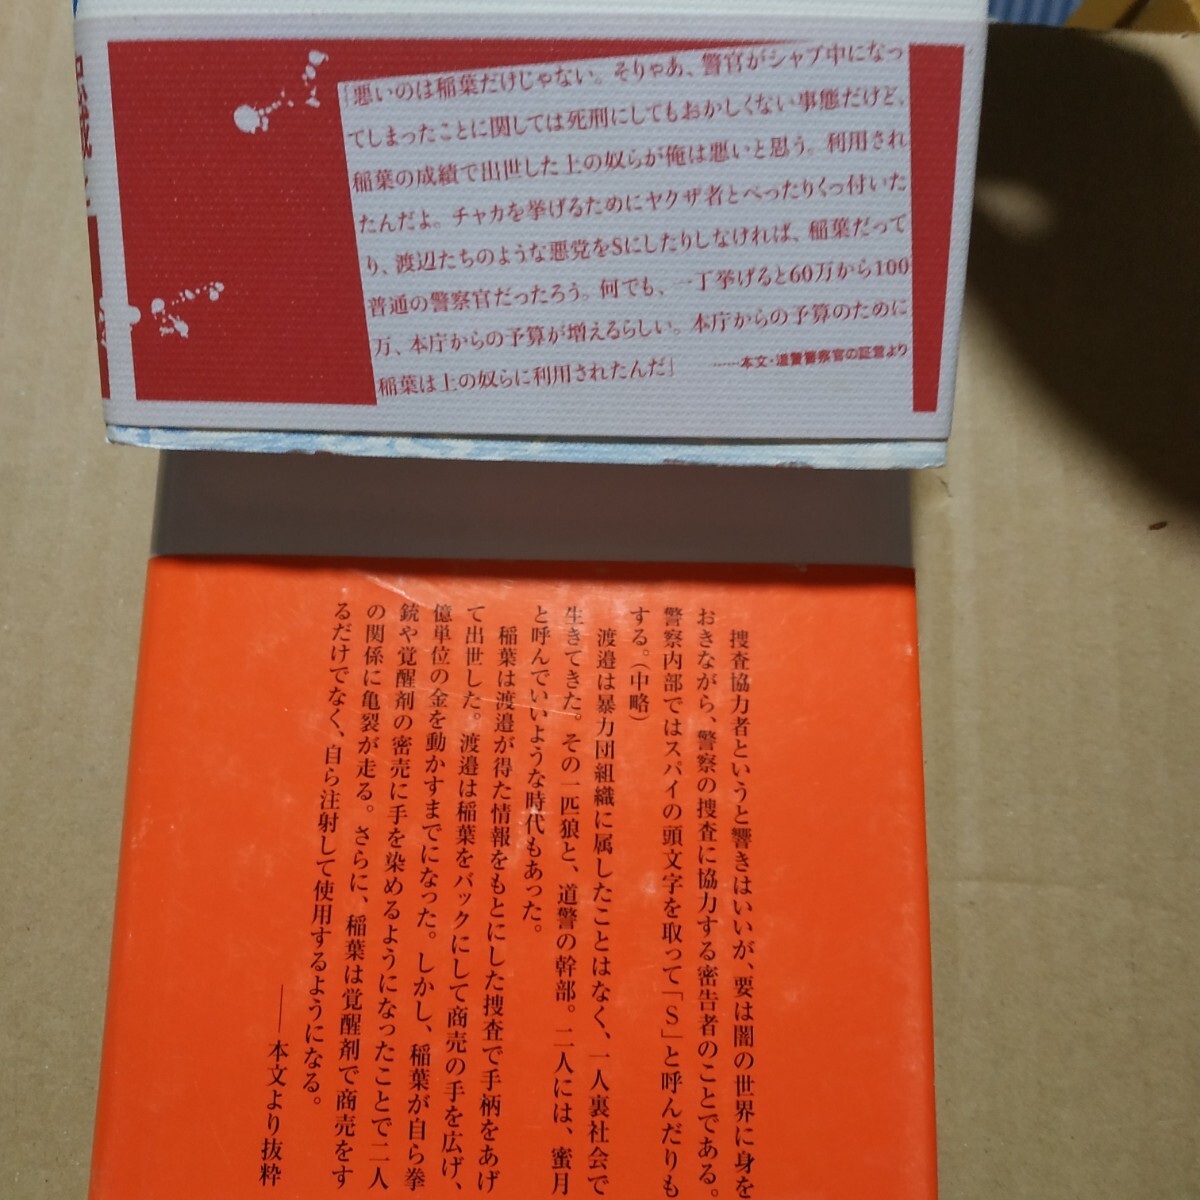 「悪いのは稲葉だけじゃない。そりゃあ、警官がシャブ中になっ
てしまったことに関しては死刑にしてもおかしくない事態だけど、
稲葉の成績で出世した上の奴らが俺は悪いと思う。利用され
たんだよ。チャカを挙げるためにヤクザ者とべったりくっ付いた
り、渡辺たちのような悪党をSにしたりしなければ、稲葉だって
普通の警察官だったろう。何でも、一丁挙げると60万から100
万、本庁からの予算が増えるらしい。本庁からの予算のために
稲葉は上の奴らに利用されたんだ」
……本文・道警警察官の証言より
捜査協力者というと響きはいいが、要は闇の世界に身を
おきながら、警察の捜査に協力する密告者のことである。
警察内部ではスパイの頭文字を取って「S」と呼んだりも
する。（中略）
渡邉は暴力団組織に属したことはなく、一人裏社会で
生きてきた。その一匹狼と、道警の幹部。二人には、蜜月
と呼んでいいような時代もあった。
稲葉は渡邉が得た情報をもとにした捜査で手柄をあげ
て出世した。渡邉は稲葉をバックにして商売の手を広げ、
億単位の金を動かすまでになった。しかし、稲葉が自ら拳
銃や覚醒剤の密売に手を染めるようになったことで二人
の関係に亀裂が走る。さらに、稲葉は覚醒剤で商売をす
るだけでなく、自ら注射して使用するようになる。
――本文より抜粋